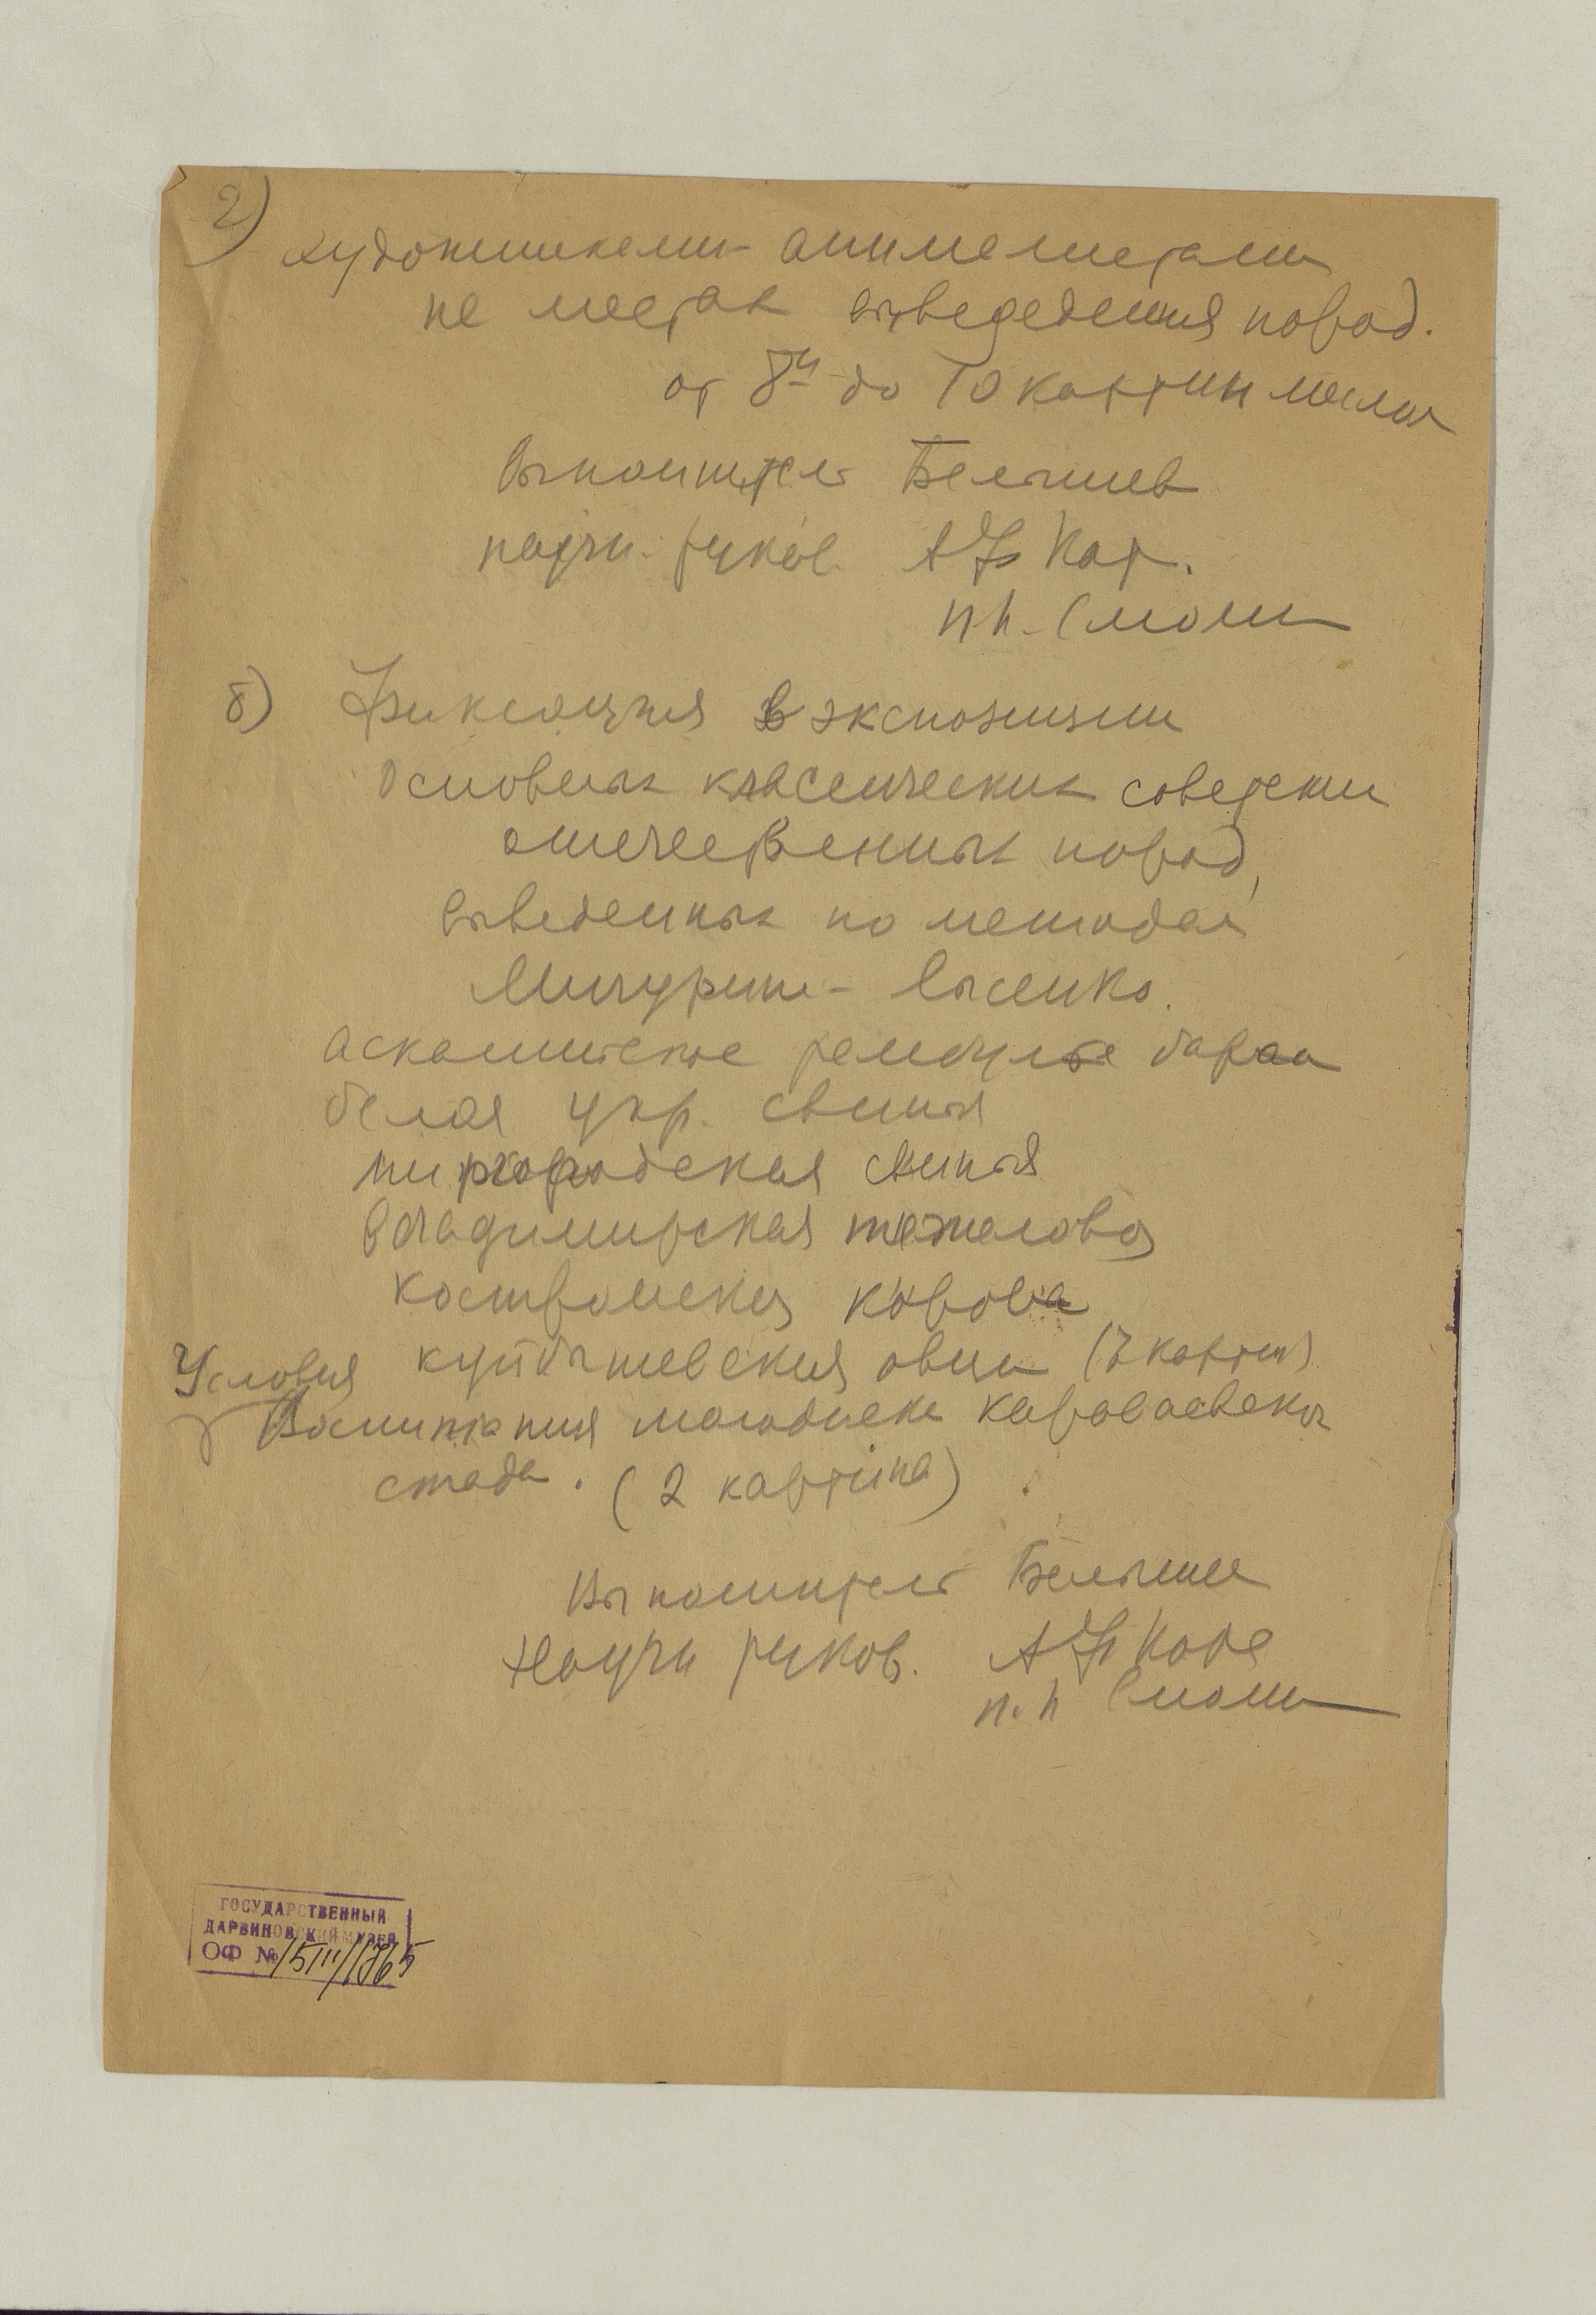 2)
художниками анималистами
на местах выведедения пород.
от 8ми до 10 картин маслом
Выполнитель Белышев
научн. руков. А Ф Котс.
п.п. Смолин
б) Фиксация в экспозиции
Основных классических советских
отечественных пород,
выведенных по методам
Мичурина - Лысенко.
асканийское рамбулье баран
белая укр. свинья
миргородская свинья
Владимирская тяжеловоз
костромская корова
куйбышевская овца (7 картин)
Условия
Воспитания молодняка караваевского
стада. (2 картины)
Выполнитель Белышев
Научн руков. А Ф Котс
п.п Смолин
ГОСУДАРСТВЕННЫЙ
ДАРВИНОВСКИЙ МУЗЕЙ
ОФ № 15111/1865